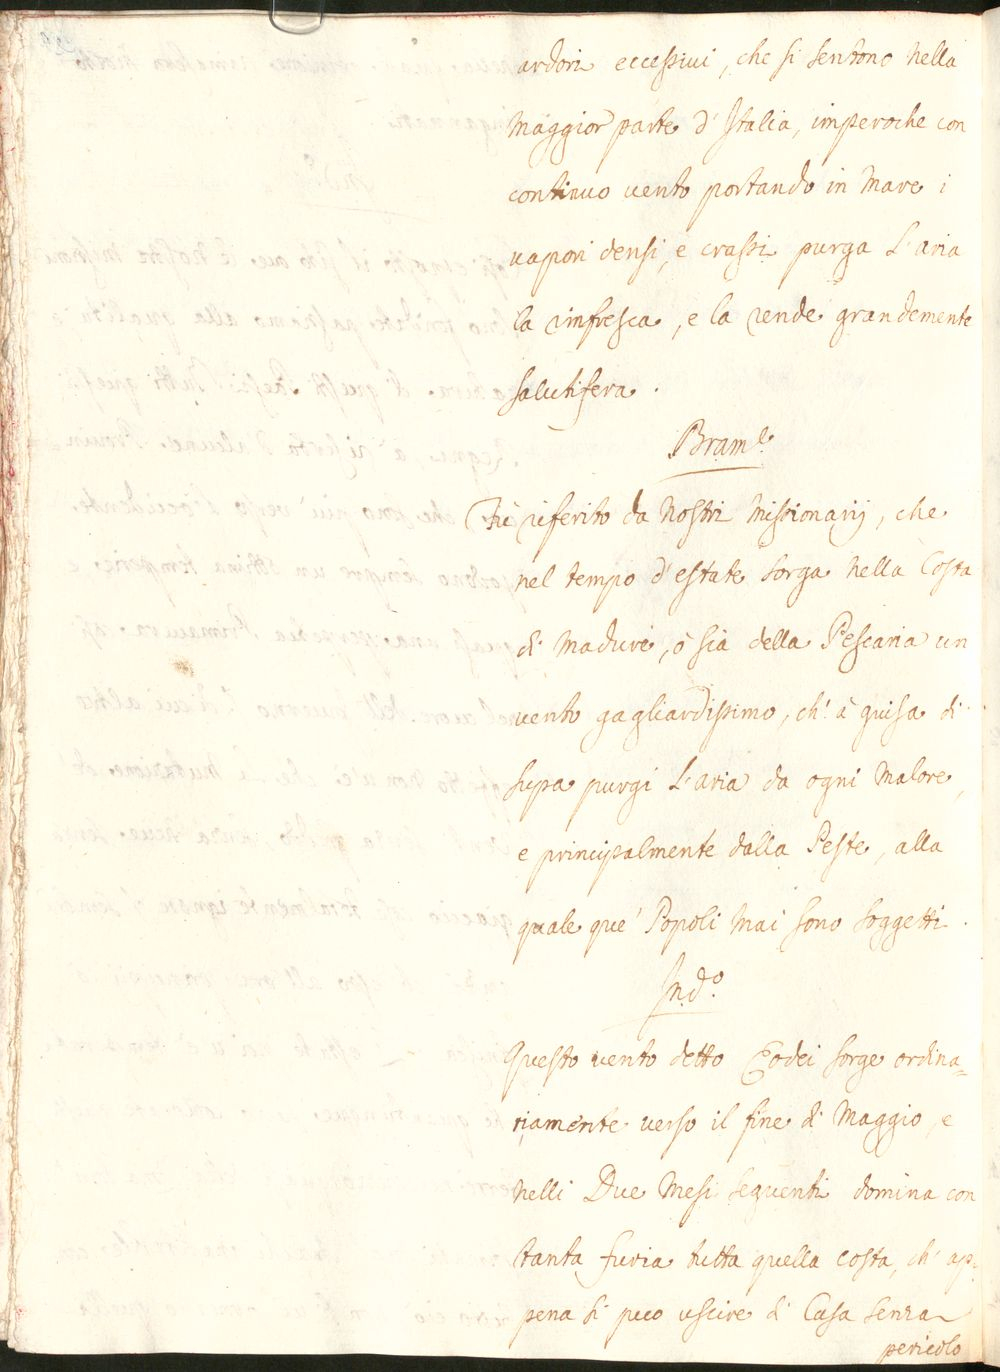 ardori eccessiui, che si sentono nella
maggior parte d'Italia, imperoche con
continuo uento portando in mare i
uapori densi, e crassi purga l'aria
la rinfresca, e la rende grandemente
salutifera.
Bram.e
Fù riferito da nostri Missionarij, che
nel tempo d'estate sorga nella Costa
di Madurè, ò sia della Pescaria un
uento gagliardissimo, ch'à guisa di
supa purgi l'aria da ogni malore,
e principalmente dalla Peste, alla
quale que' Popoli mai sono soggetti.
Ind.o
Questo uento detto Codei sorge ordina=
riamente uerso il fine di Maggio, e
nelli Due Mesi seguenti domina con
tanta furia tutta quella costa, ch'ap=
pena si puo uscire di Casa senza
pericolo